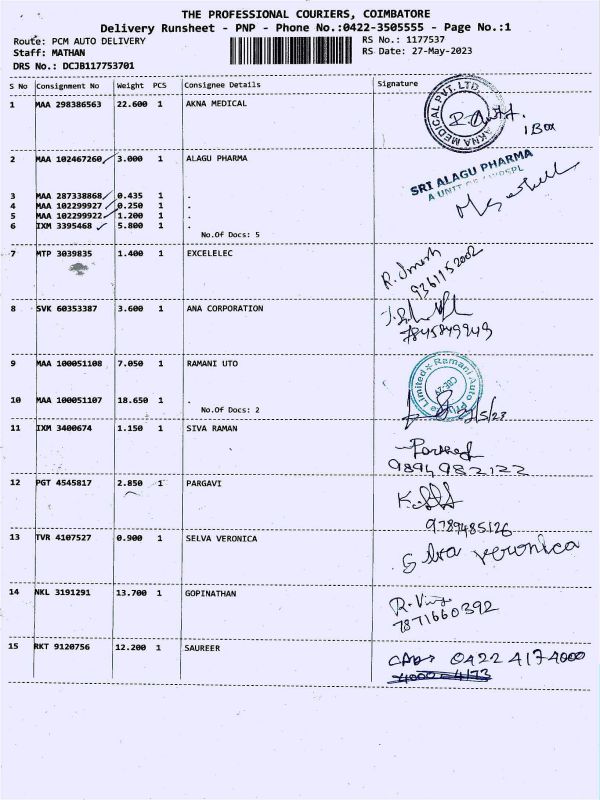 THE PROFESSIONAL COURIERS, COIMBATORE
Delivery Runsheet - PNP - Phone No.:0422-3505555 - Page No.:1
Route: PCM AUTO DELIVERY
RS No.: 1177537
Staff: MATHAN
RS Date: 27-May-2023
DRS No.: DCJB117753701
S No Consignment No Weight PCS Consignee Details Signature
1 MAA 298386563 22.600 1 AKNA MEDICAL
AKNA MEDICAL PVT. LTD.
1 Box
2 MAA 102467260 3.000 1 ALAGU PHARMA
SRI ALAGU PHARMA
A UNIT OF
3 MAA 287338868 0.435 1 .
4 MAA 102299927 0.250 1 .
5 MAA 102299922 1.200 1 .
6 IXM 3395468 5.800 1 .
No.Of Docs: 5
7 MTP 3039835 1.400 1 EXCELELEC
R. Dinesh
9361152002
8 SVK 60353387 3.600 1 ANA CORPORATION
7845849949
9 MAA 100051108 7.050 1 RAMANI UTO
Ramani Auto
Limited
10 MAA 100051107 18.650 1 .
No.Of Docs: 2
11 IXM 3400674 1.150 1 SIVA RAMAN
9894982122
12 PGT 4545817 2.850 1 PARGAVI
9789485126
13 TVR 4107527 0.900 1 SELVA VERONICA
Selva Veronica
14 NKL 3191291 13.700 1 GOPINATHAN
7871660392
15 RKT 9120756 12.200 1 SAUREER
0422 4174000